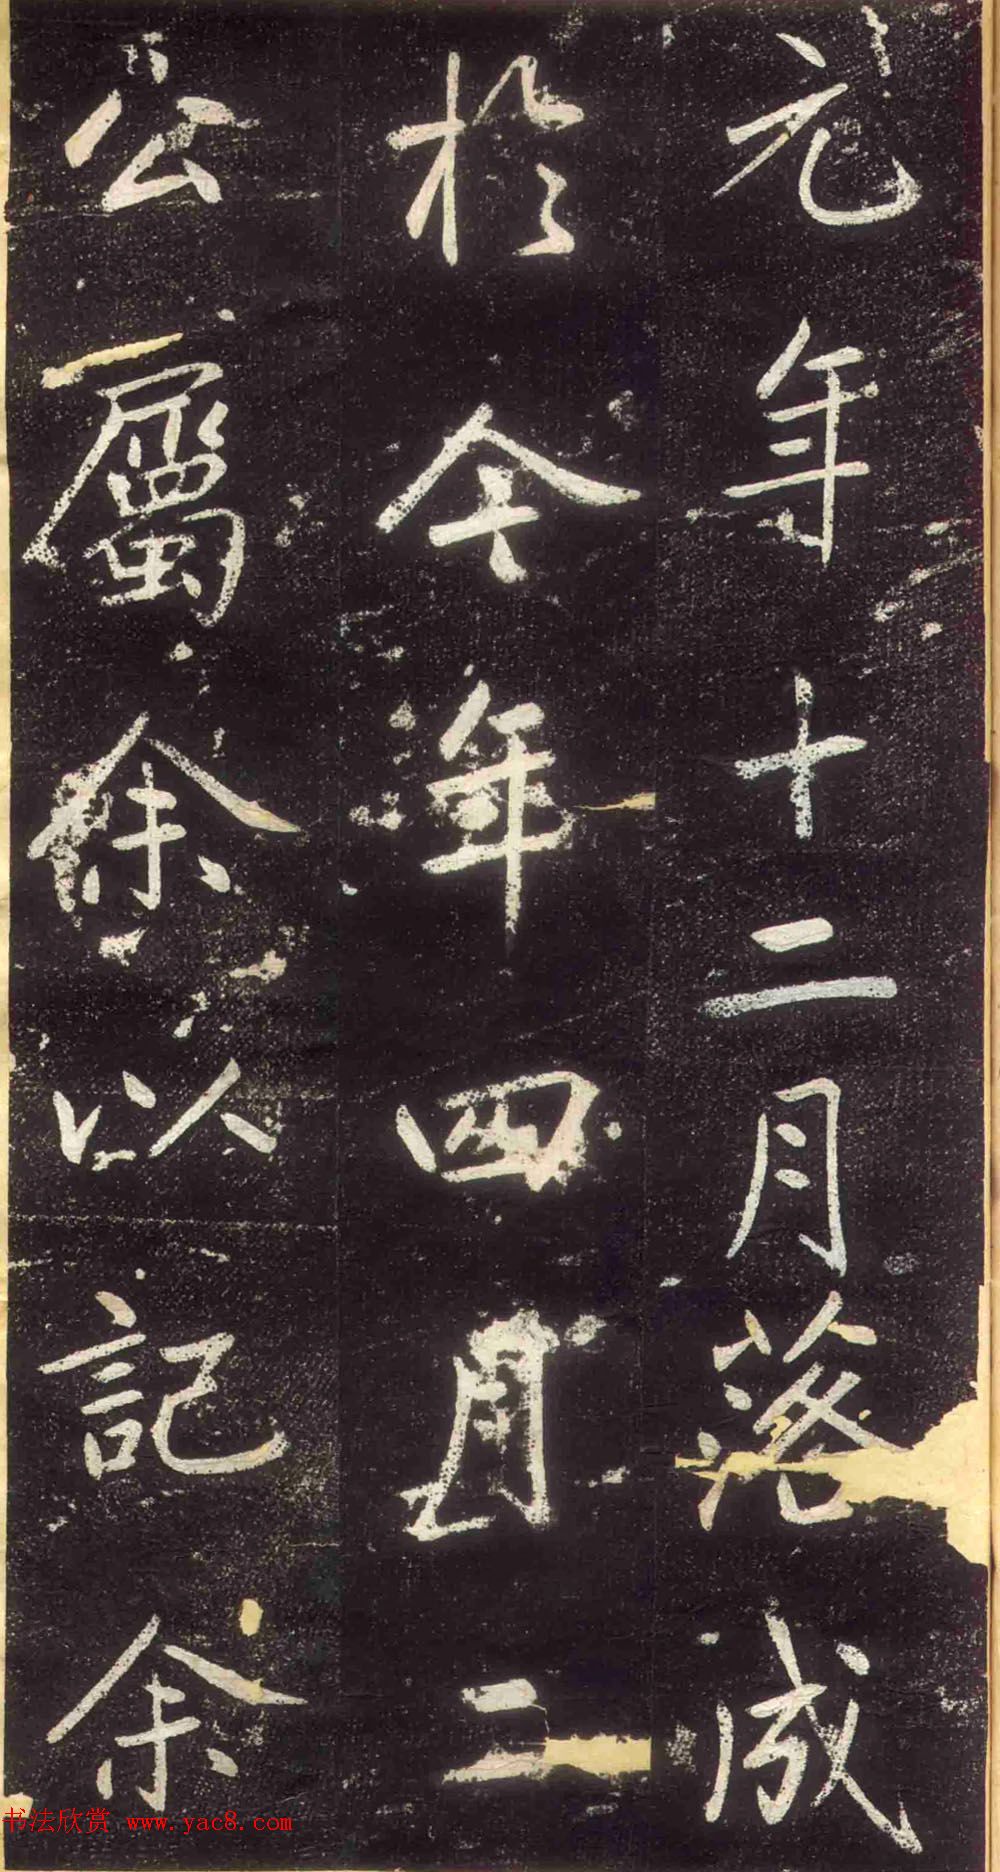 元年十二月落成
於今年四月二
公屬余以記余
书法欣赏 www.yac8.com